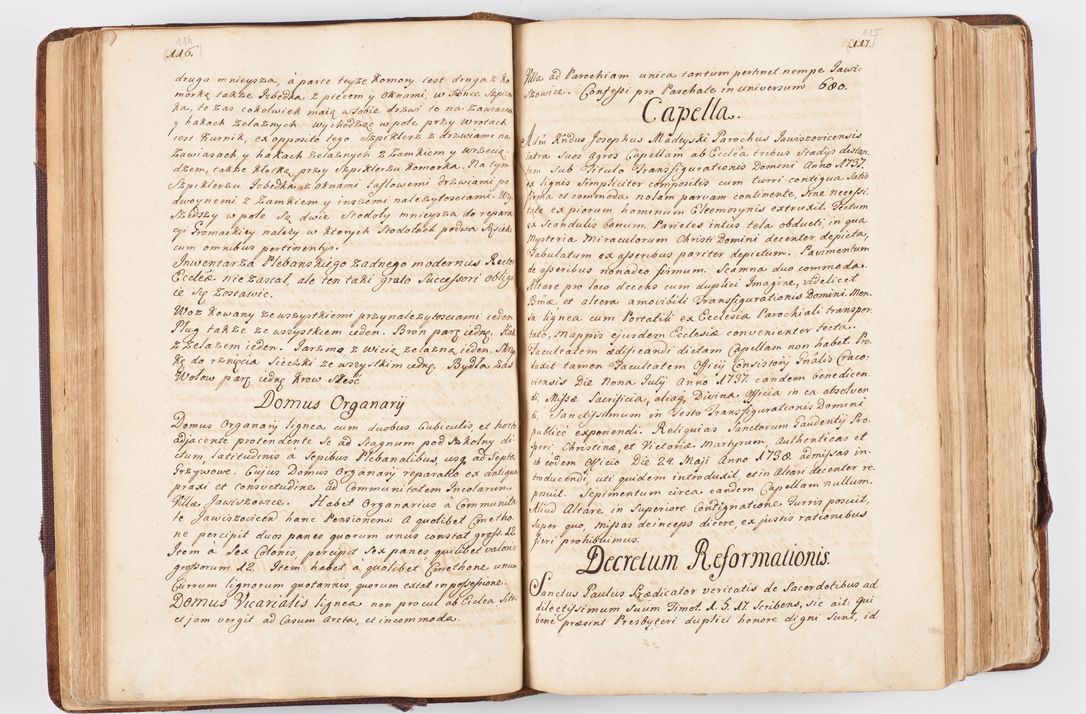 114
116.
druga mnieysza, á parte teyże Komory iest druga z ko
morką także Izbedka z piecem y oknami, w Sönce Szpiża
ka, te zas cokolwiek maią w sobie drzwi to na Zawiasach
y hakach żelaznych. Wychodząc w pole przy Wrotach
iest Kurnik, ex opposito tego Szpiklerz z drzwiami na
Zawiasach y hakach żelaznych z Zamkiem y wrzecią
dzem, także klotką przy Szpiklerzu Komorka. Na tym
Szpiklerzu Izbedka z oknami taflowemi drzwiami po
dwoynemi z Zamkiem y inszemi należytosciami. Wy
szedszy w pole są dwie Stodoły mnieysza do repara
cyi Gromackiey należy w ktorych Stodolach podwa Sąsieki
cum omnibus pertinentys.
Inwentarza Plebanskiego żadnego modernus Rector
Ecclæ nie zastał, ale ten taki grato Successori oblig
ie się zostawic.
Woz kowany ze wszystkiemi przynależytosciami ieden
Pług także ze wszystkiem ieden. Bron parę iedną. Hak
z żelazem ieden. Iarzmo, z wicią żelazną ieden. Skrzyn
kę do rznięcia Sieczki ze wszystkim iedną. Bydła zas
Wołow parę iedną krow Szesć
Domus Organarij
Domus Organarij lignea cum duobus Cubiculis, et horto
adjacente protendente se ad Stagnum pod Szkolny di
ctum, latitudinis á Sepibus Plebanalibus, usq ad Septa
Grzywowe. Cujus Domus Organarij reparatio ex antiqua
praxi et consvetudine ad Communitatem Incolarum
Villæ Jawiszowice. Habet Organarius á Communita
te Jawiszovicen hanc Pensionem: A quolibet Cmetho
ne percipit duos panes quorum unus constat gross. 12
Item á Sex Colonis, percipit Sex panes quilibet valoris
grossorum 12. Item habet á quolibet Cmethone unum
Currum lignorum quotannis, quorum extat in possessione.
Domus Vicarialis lignea non procul ab Ecclea Sita
et jam vergit ad Casum Arcta, et incommoda.
115
117.
Villa ad Parochiam unica tantum pertinet nempe Jawi-
szowice. Confessi pro Paschate in universum 680.
Capella.
Adm Rndus Josephus Madeyski Parochus Jawiszovicensis
intra Suos Agros Capellam ab Ecclea tribus Stadijs distan-
tem Sub Titulo Transfigurationis Domini Anno 1737.
ex lignis Simpliciter compositis cum turri contigua Satis
firma et commoda nolam parvam continente, sine necessi-
tate ex piorum hominum Eleemosynis extruxit. Tectum
ex Scandulis bonum. Parietes intus tela obducti, in qua
Mysteria Miraculorum Christi Domini decenter depicta,
Tabulatum ex asseribus pariter depictum. Pavimentum
de asseribus nonadeo firmum. Scamna duo commoda.
Altare pro loco decens cum duplici Imagine, videlicet
Bmæ et altera amovibili Transfigurationis Domini. Men-
sa lignea cum Portatili ex Ecclesia Parochiali transpor-
tato, Mappis ejusdem Ecclesiæ convenienter tecta.
Facultatem ædificandi dictam Capellam non habet. Pro-
duxit tamen Facultatem Officij Consistorij Gnalis Craco-
viensis Die Nona Julij Anno 1737. eandem benedicen-
di, Missæ Sacrificia, aliaq Divina Officia in ea absolven
di, Sanctissimum in Festo Transfigurationis Domini
publicé exponendi. Reliquias Sanctorum Gaudentij Pro-
speri Christinæ, et Victoriæ Martyrum, Authenticas et
ab eodem Officio Die 24. Maji Anno 1738. admissas in-
troducendi, uti quidem introduxit, et in Altari decenter re-
posuit. Sepimentum circa eandem Capellam nullum.
Aliud Altare in Superiore Contignatione Turris posuit,
Super quo, Missas deinceps dicere, ex justis rationibus
fieri prohibuimus.
Decretum Reformationis.
Sanctus Paulus Prædicator veritatis de Sacerdotibus ad
dilectissimum Suum Timot. 1. 5. 17 Scribens, Sic ait: Qui
bene præsint Presbyteri duplici honore digni Sunt, id